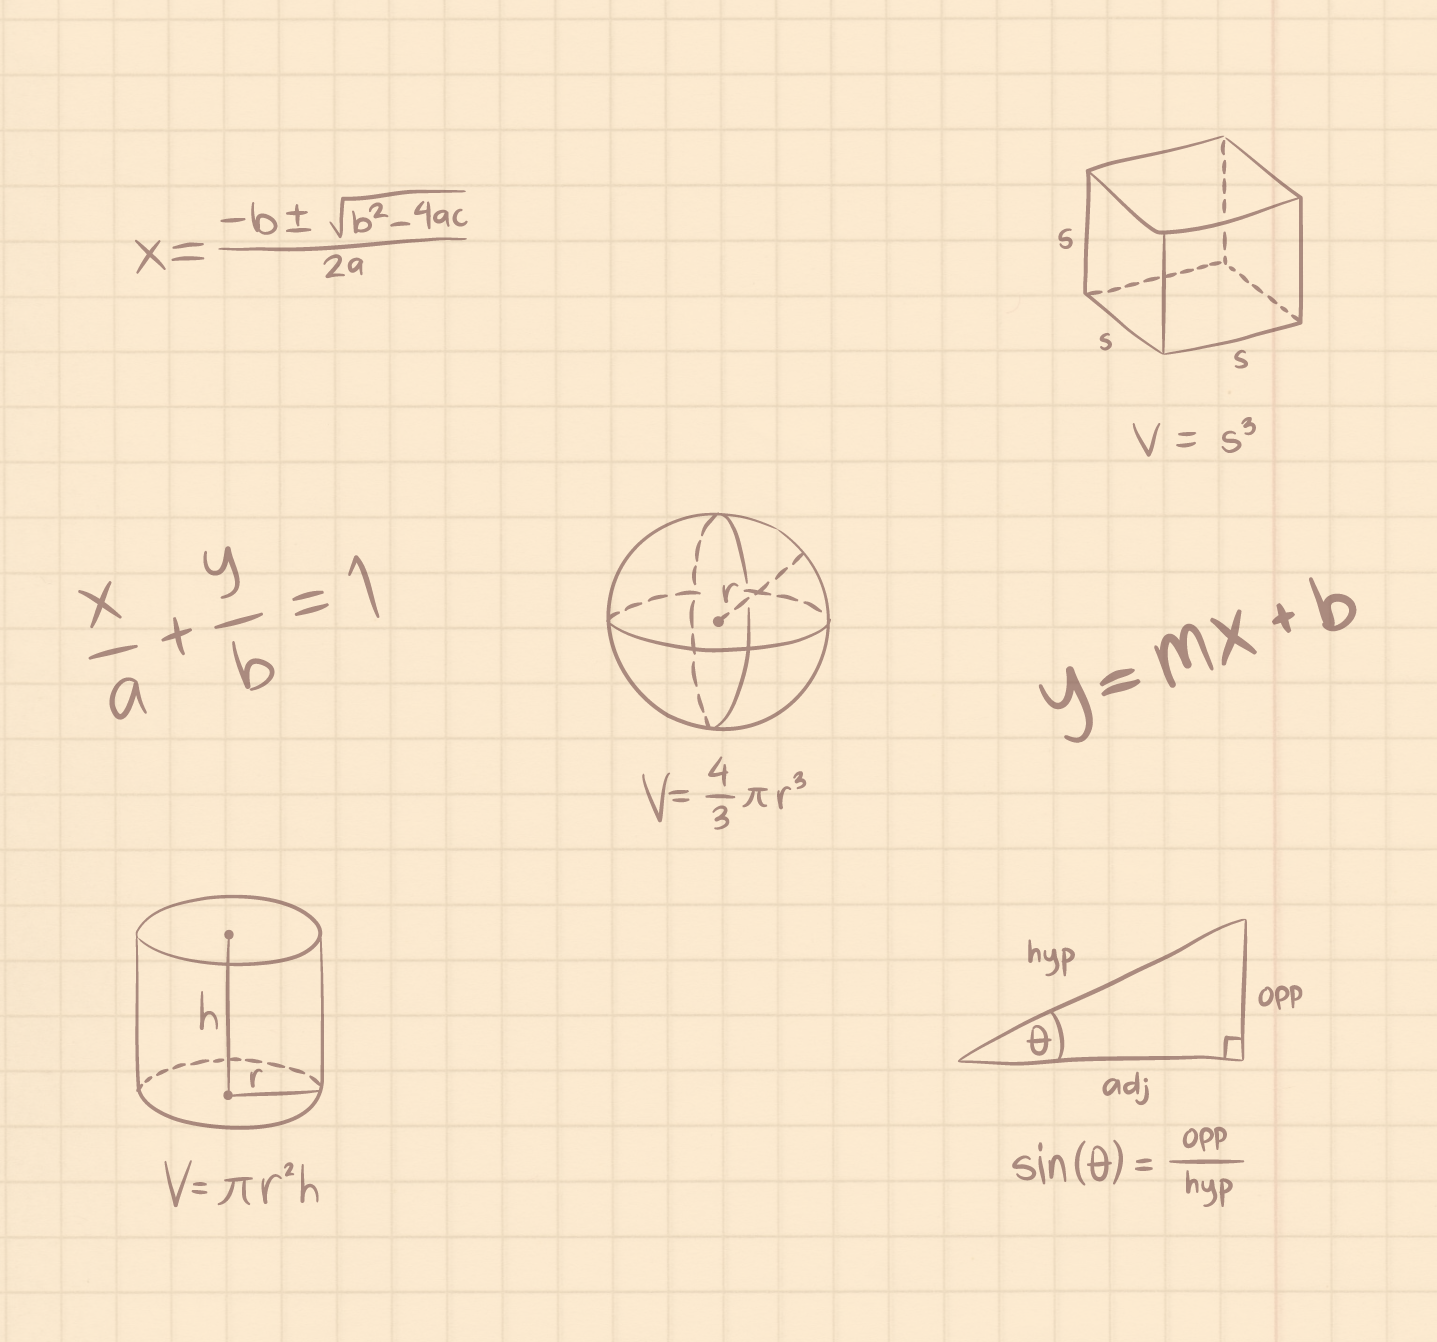 x = (-b ± √(b² - 4ac)) / 2a
s
s
s
V = s³
x/a + y/b = 1
r
V = 4/3 π r³
y = mx + b
h
r
V = π r² h
hyp
opp
θ
adj
sin(θ) = opp/hyp